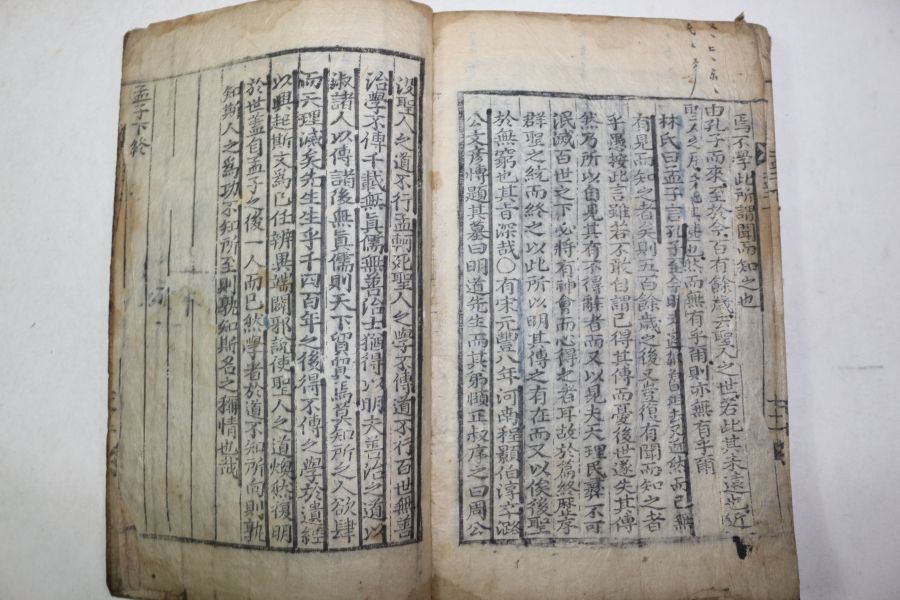 焉不學此所謂聞而知之也
由孔子而來至於今百有餘歲去聖人之世若此其未遠也近
聖人之居若此其甚也然而無有乎爾則亦無有乎爾
林氏曰孟子言孔子至今時未遠鄒魯相去又近然而已無
有見而知之者矣則五百餘歲之後又豈復有聞而知之者
乎愚按此言雖若不敢自謂已得其傳而憂後世遂失其傳
然乃所以自見其有不得辭者而又以見夫天理民彛不可
泯滅百世之下必將有神會而心得之者耳故於篇終歷序
群聖之統而終之以此所以明其傳之有在而又以俟後聖
於無窮也其旨深哉○有宋元豐八年河南程顥伯淳卒潞
公文彦博題其墓曰明道先生而其弟頤正叔序之曰周公
沒聖人之道不行孟軻死聖人之學不傳道不行百世無善
治學不傳千載無眞儒無善治士猶得以明夫善治之道以
淑諸人以傳諸後無眞儒則天下貿貿焉莫知所之人欲肆
而天理滅矣先生生乎千四百年之後得不傳之學於遺經
以興起斯文爲己任辨異端闢邪說使聖人之道煥然復明
於世蓋自孟子之後一人而已然學者於道不知所向則孰
知斯人之爲功不知所至則孰知斯名之稱情也哉
孟子下終